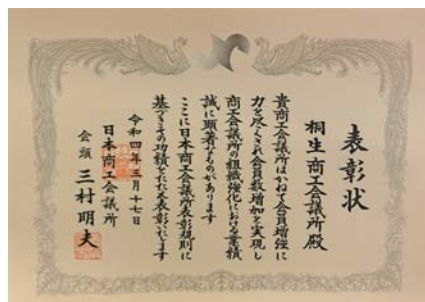 表彰状
桐生商工会議所殿
貴商工会議所はかねて会員増強に
力を尽くされ会員数増加を実現し
商工会議所の組織強化における業績
誠に顕著なものがあります
ここに日本商工会議所表彰規則に
基づきその功績をたたえ表彰いたします
令和四年三月十七日
日本商工会議所
会頭 三村明夫